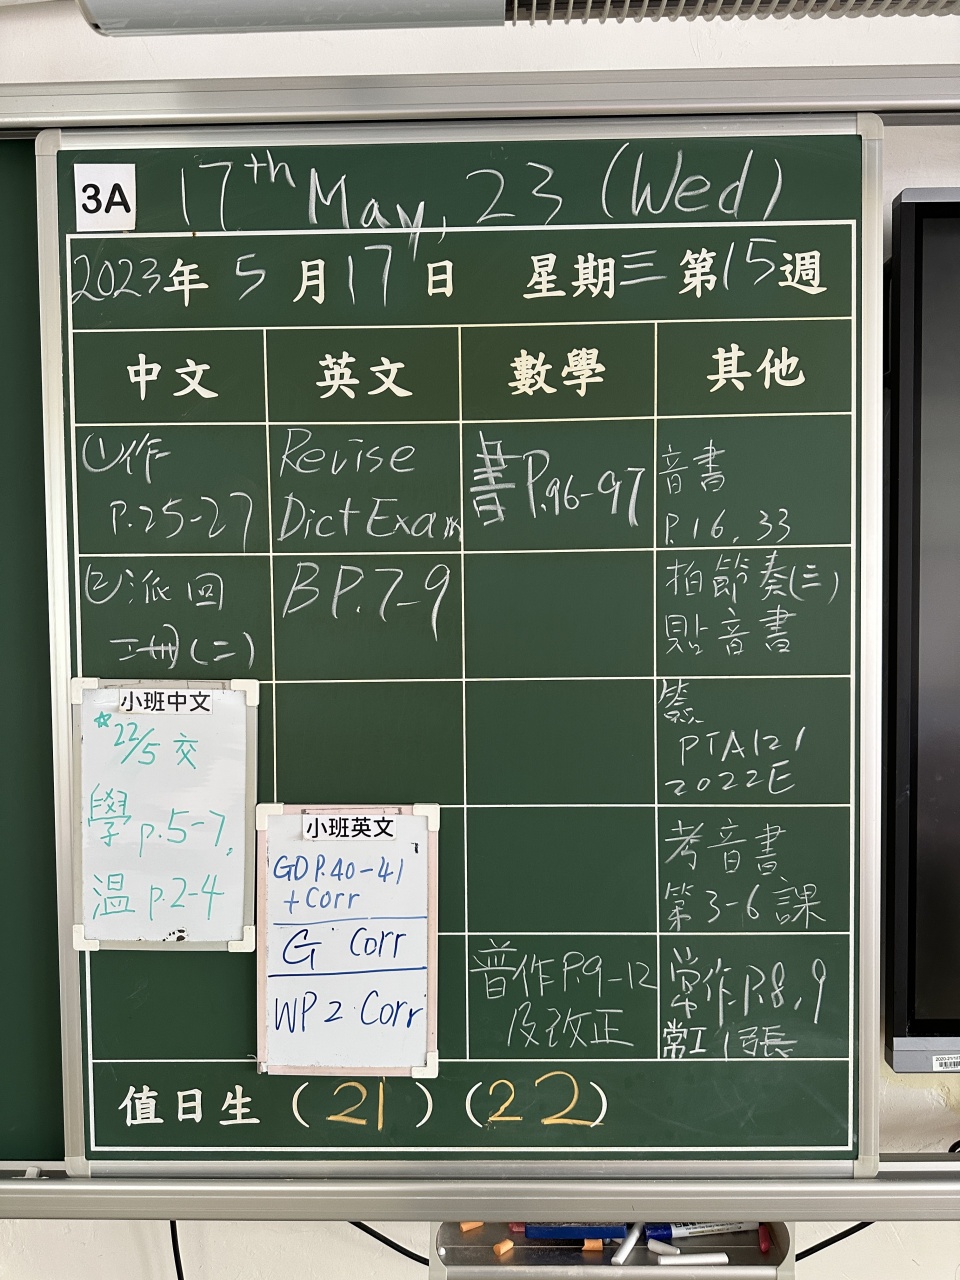 3A
17th May, 23 (Wed)
2023年 5月17日 星期三 第15週
中文 英文 數學 其他
①作
P.25-27
②派回
工冊(二)
Revise
Dict Exam
BP.7-9
書P.96-97
音書
P.16, 33
拍節奏(三)
貼音書
簽
PTA121
2022E
考音書
第3-6課
普作P.9-12
及改正
常作P.8,9
常工1張
小班中文
22/5 交
學 p.5-7,
溫 p.2-4
小班英文
GD P.40-41
+Corr
G Corr
WP2 Corr
值日生 (21) (22)